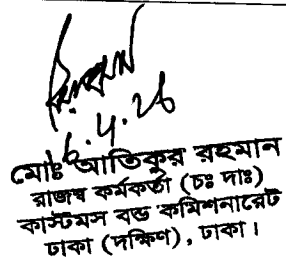 মোঃ আতিকুর রহমান
রাজস্ব কর্মকর্তা (চঃ দাঃ)
কাস্টমস বন্ড কমিশনারেট
ঢাকা (দক্ষিণ), ঢাকা।